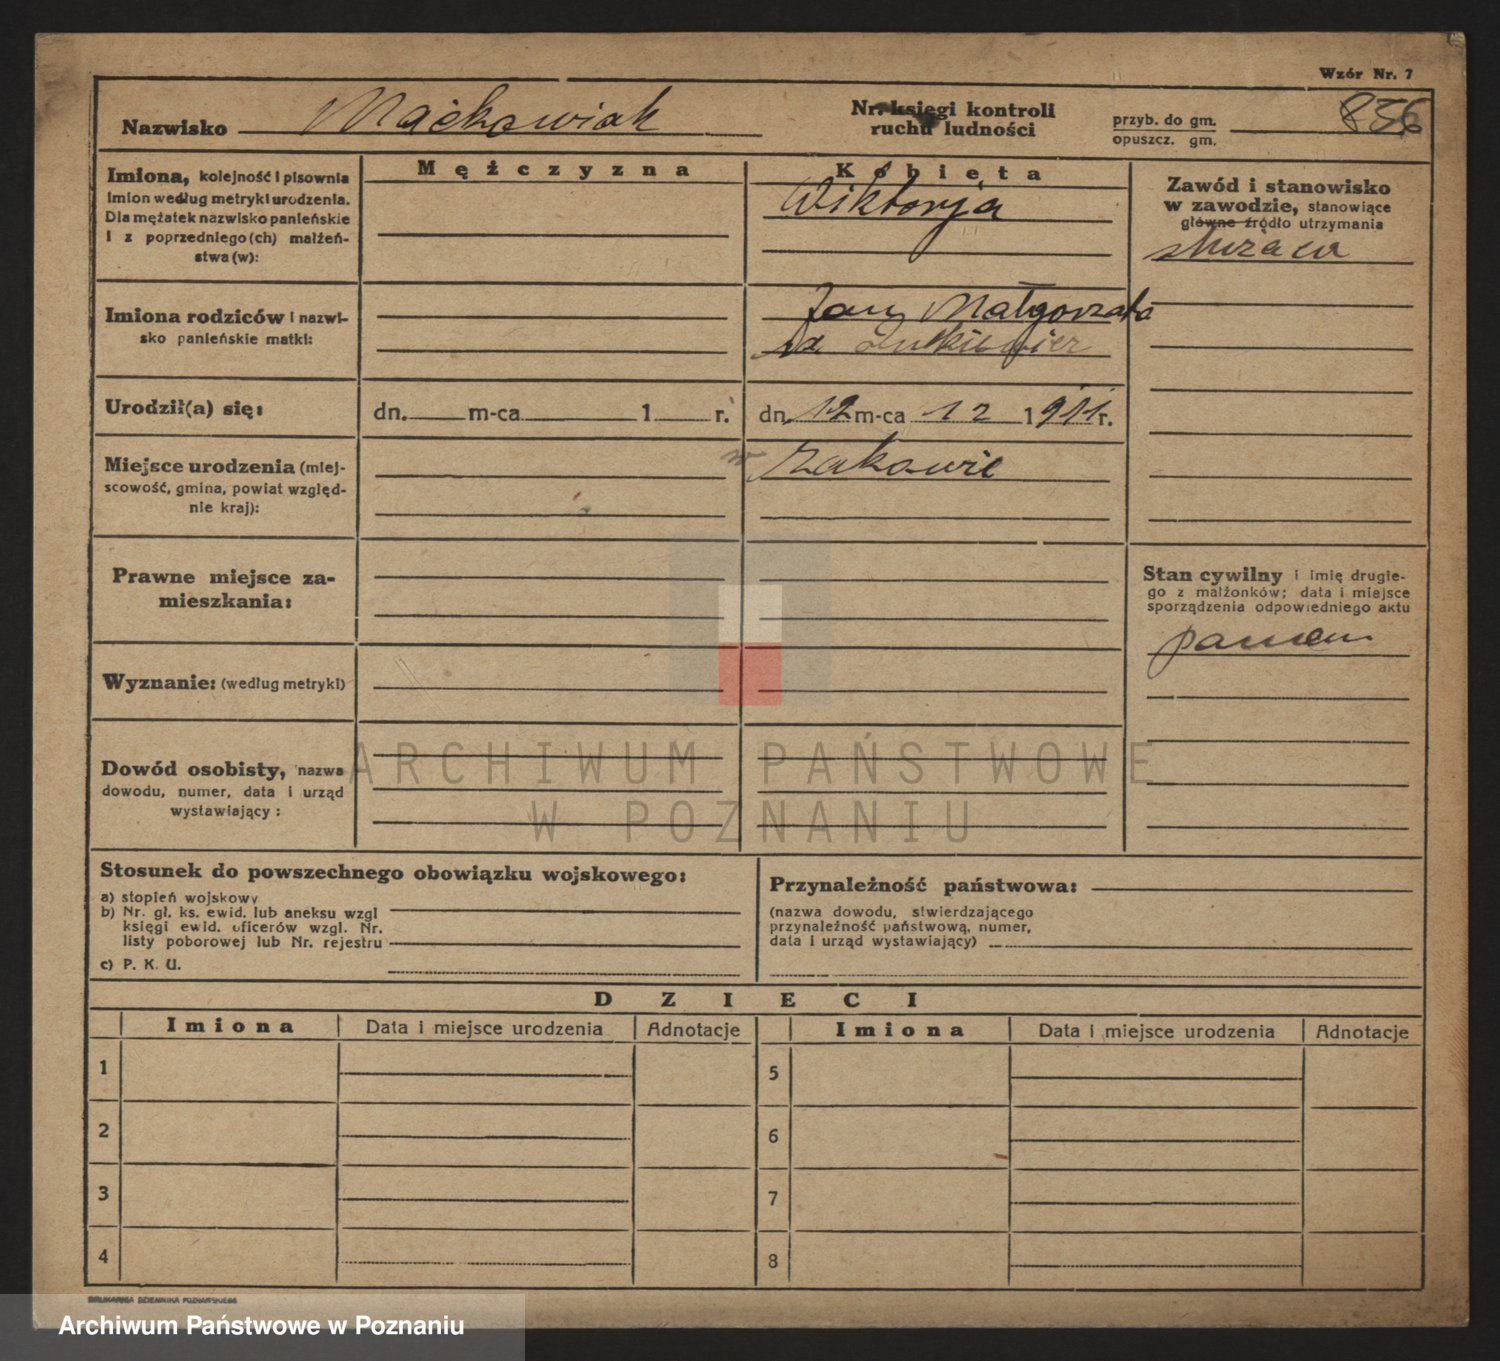 Wzór Nr. 7
Nazwisko Maćkowiak
Nr. księgi kontroli
ruchu ludności
przyb. do gm.
opuszcz. gm.
836
Imiona, kolejność i pisownia
imion według metryki urodzenia.
Dla mężatek nazwisko panieńskie
i z poprzedniego(ch) małżeń-
stwa(w):
Mężczyzna
Kobieta
Wiktorja
Zawód i stanowisko
w zawodzie, stanowiące
główne źródło utrzymania
Imiona rodziców i nazwi-
sko panieńskie matki:
Jan Małgorzata
Urodził(a) się:
dn. m-ca 1 r.
dn. 12 m-ca 12 1911 r.
Miejsce urodzenia (miej-
scowość, gmina, powiat względ-
nie kraj):
w Żakowie
Prawne miejsce za-
mieszkania:
Stan cywilny i imię drugie-
go z małżonków; data i miejsce
sporządzenia odpowiedniego aktu
Wyznanie: (według metryki)
Dowód osobisty, nazwa
dowodu, numer, data i urząd
wystawiający:
ARCHIWUM PAŃSTWOWE
W POZNANIU
Stosunek do powszechnego obowiązku wojskowego:
a) stopień wojskowy
b) Nr. gł. ks. ewid. lub aneksu wzgl
księgi ewid. oficerów wzgl. Nr.
listy poborowej lub Nr. rejestru
c) P. K. U.
Przynależność państwowa:
(nazwa dowodu, stwierdzającego
przynależność państwową, numer,
data i urząd wystawiający)
DZIECI
Imiona Data i miejsce urodzenia Adnotacje Imiona Data i miejsce urodzenia Adnotacje
1 5
2 6
3 7
4 8
DRUKARNIA DZIENNIKA POZNAŃSKIEGO
Archiwum Państwowe w Poznaniu